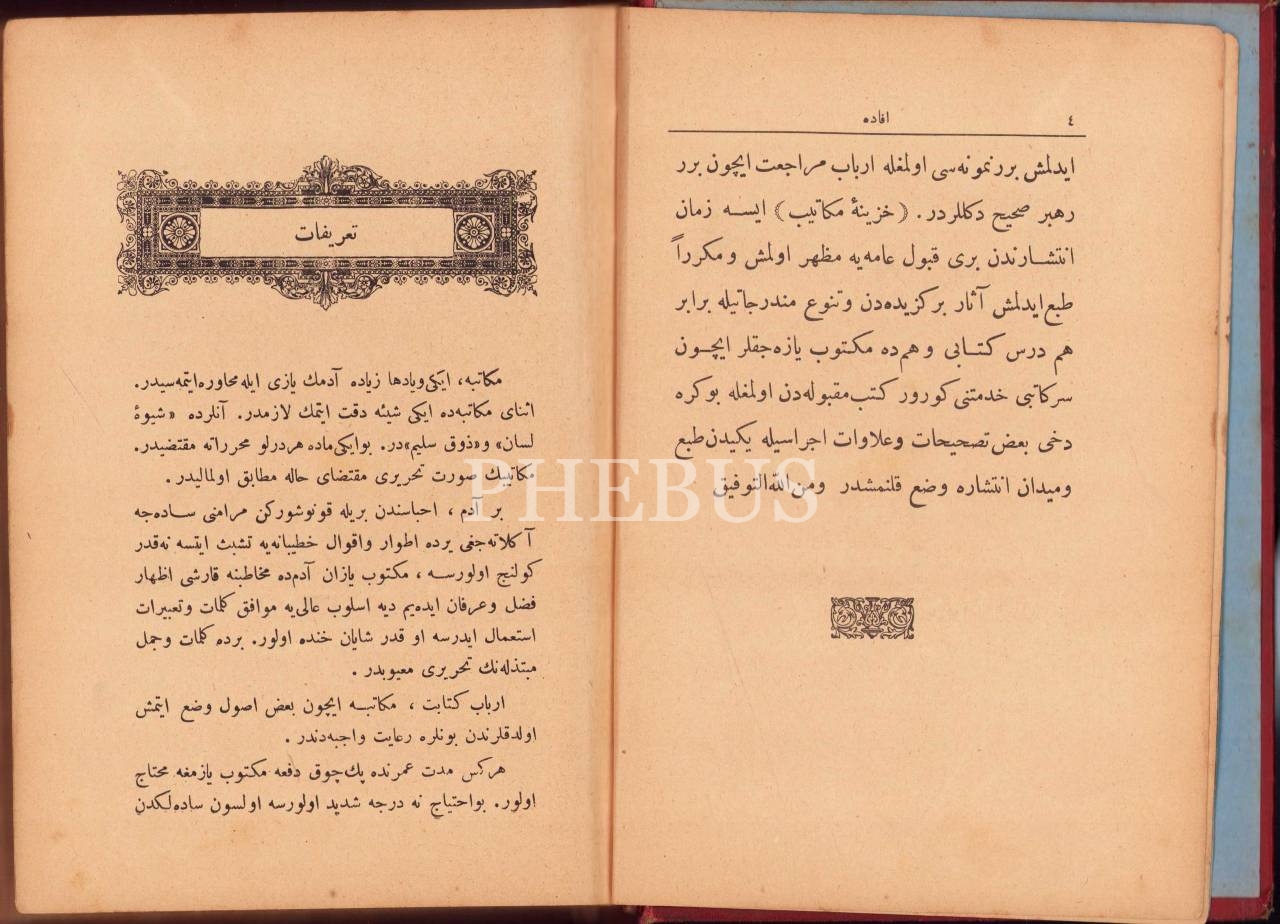 ٤
افاده
ايدلمش بررنمونه‌سى اولمغله ارباب مراجعت ايچون برر
رهبر صحيح دكللردر . (خزينهٔ مكاتيب) ايسه زمان
انتشارندن برى قبول عامه‌يه مظهر اولمش ومكرراً
طبع ايدلمش آثار بركزيده‌دن وتنوع مندرجاتيله برابر
هم درس كتابى وهم‌ده مكتوب يازه‌جقلر ايچون
سركاتبى خدمتنى كورور كتب مقبوله‌دن اولمغله بوكره
دخى بعض تصحيحات وعلاوات اجراسيله يكيدن طبع
وميدان انتشاره وضع قلنمشدر ومن‌الله‌التوفيق
تعريفات
مكاتبه، ايكى وياد‌ها زياده آدمك يازى ايله محاوره ايتمه‌سيدر.
اثناى مكاتبه‌ده ايكى شيئه دقت ايتمك لازمدر. آنلرده «شيوۀ
لسان» و«ذوق سليم»در. بوايكى ماده هردرلو محرراته مقتضيدر.
مكاتيبك صورت تحريرى مقتضاى حاله مطابق اولماليدر .
بر آدم ، احباسندن بريله قونوشوركن مرامنى ساده‌جه
آكلاته‌جغى يرده اطوار واقوال خطيبانه‌يه تشبث ايتسه نه‌قدر
كولنج اولورسه ، مكتوب يازان آدم‌ده مخاطبنه قارشى اظهار
فضل وعرفان ايده‌يم ديه اسلوب عالى‌يه موافق كلمات وتعبيرات
استعمال ايدرسه او قدر شايان خنده اولور. برده كلمات وجمل
مبتذله‌نك تحريرى معيوبدر .
ارباب كتابت ، مكاتبه ايچون بعض اصول وضع ايتمش
اولدقلرندن بونلره رعايت واجبه‌دندر .
هركس مدت عمرنده پك‌چوق دفعه مكتوب يازمغه محتاج
اولور. بواحتياج نه درجه شديد اولورسه اولسون ساده‌لكدن
PHEBUS